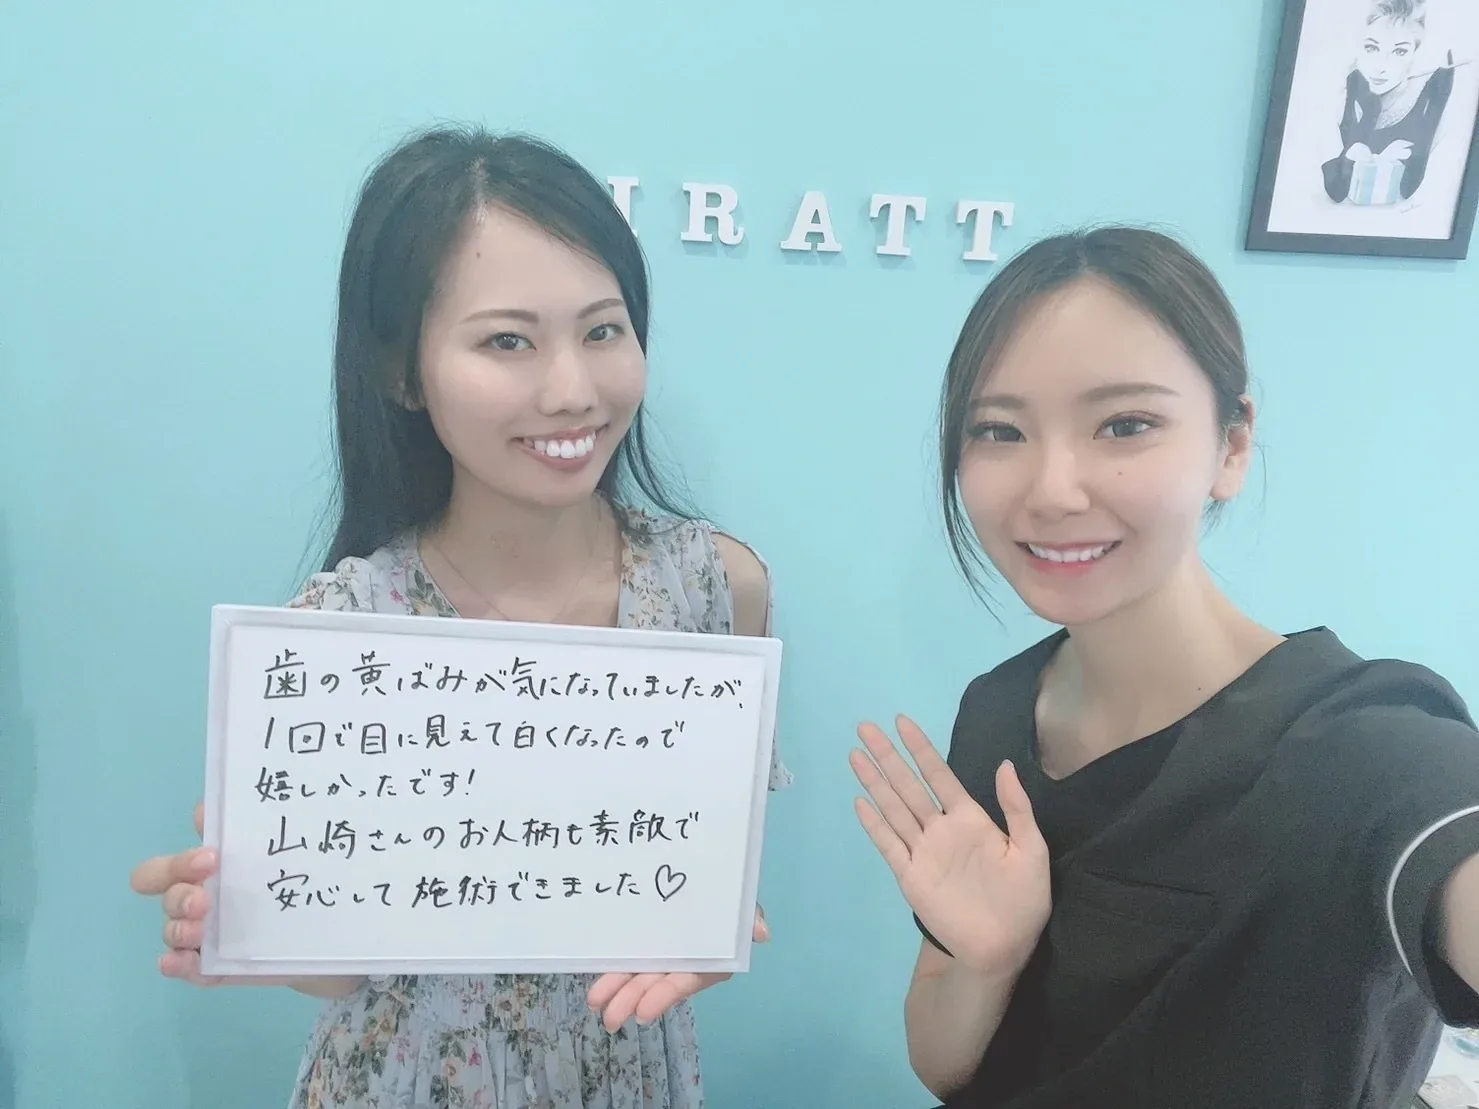 IRATT
歯の黄ばみが気になっていましたが、
1回で目に見えて白くなったので
嬉しかったです!
山崎さんのお人柄も素敵で
安心して施術できました♡